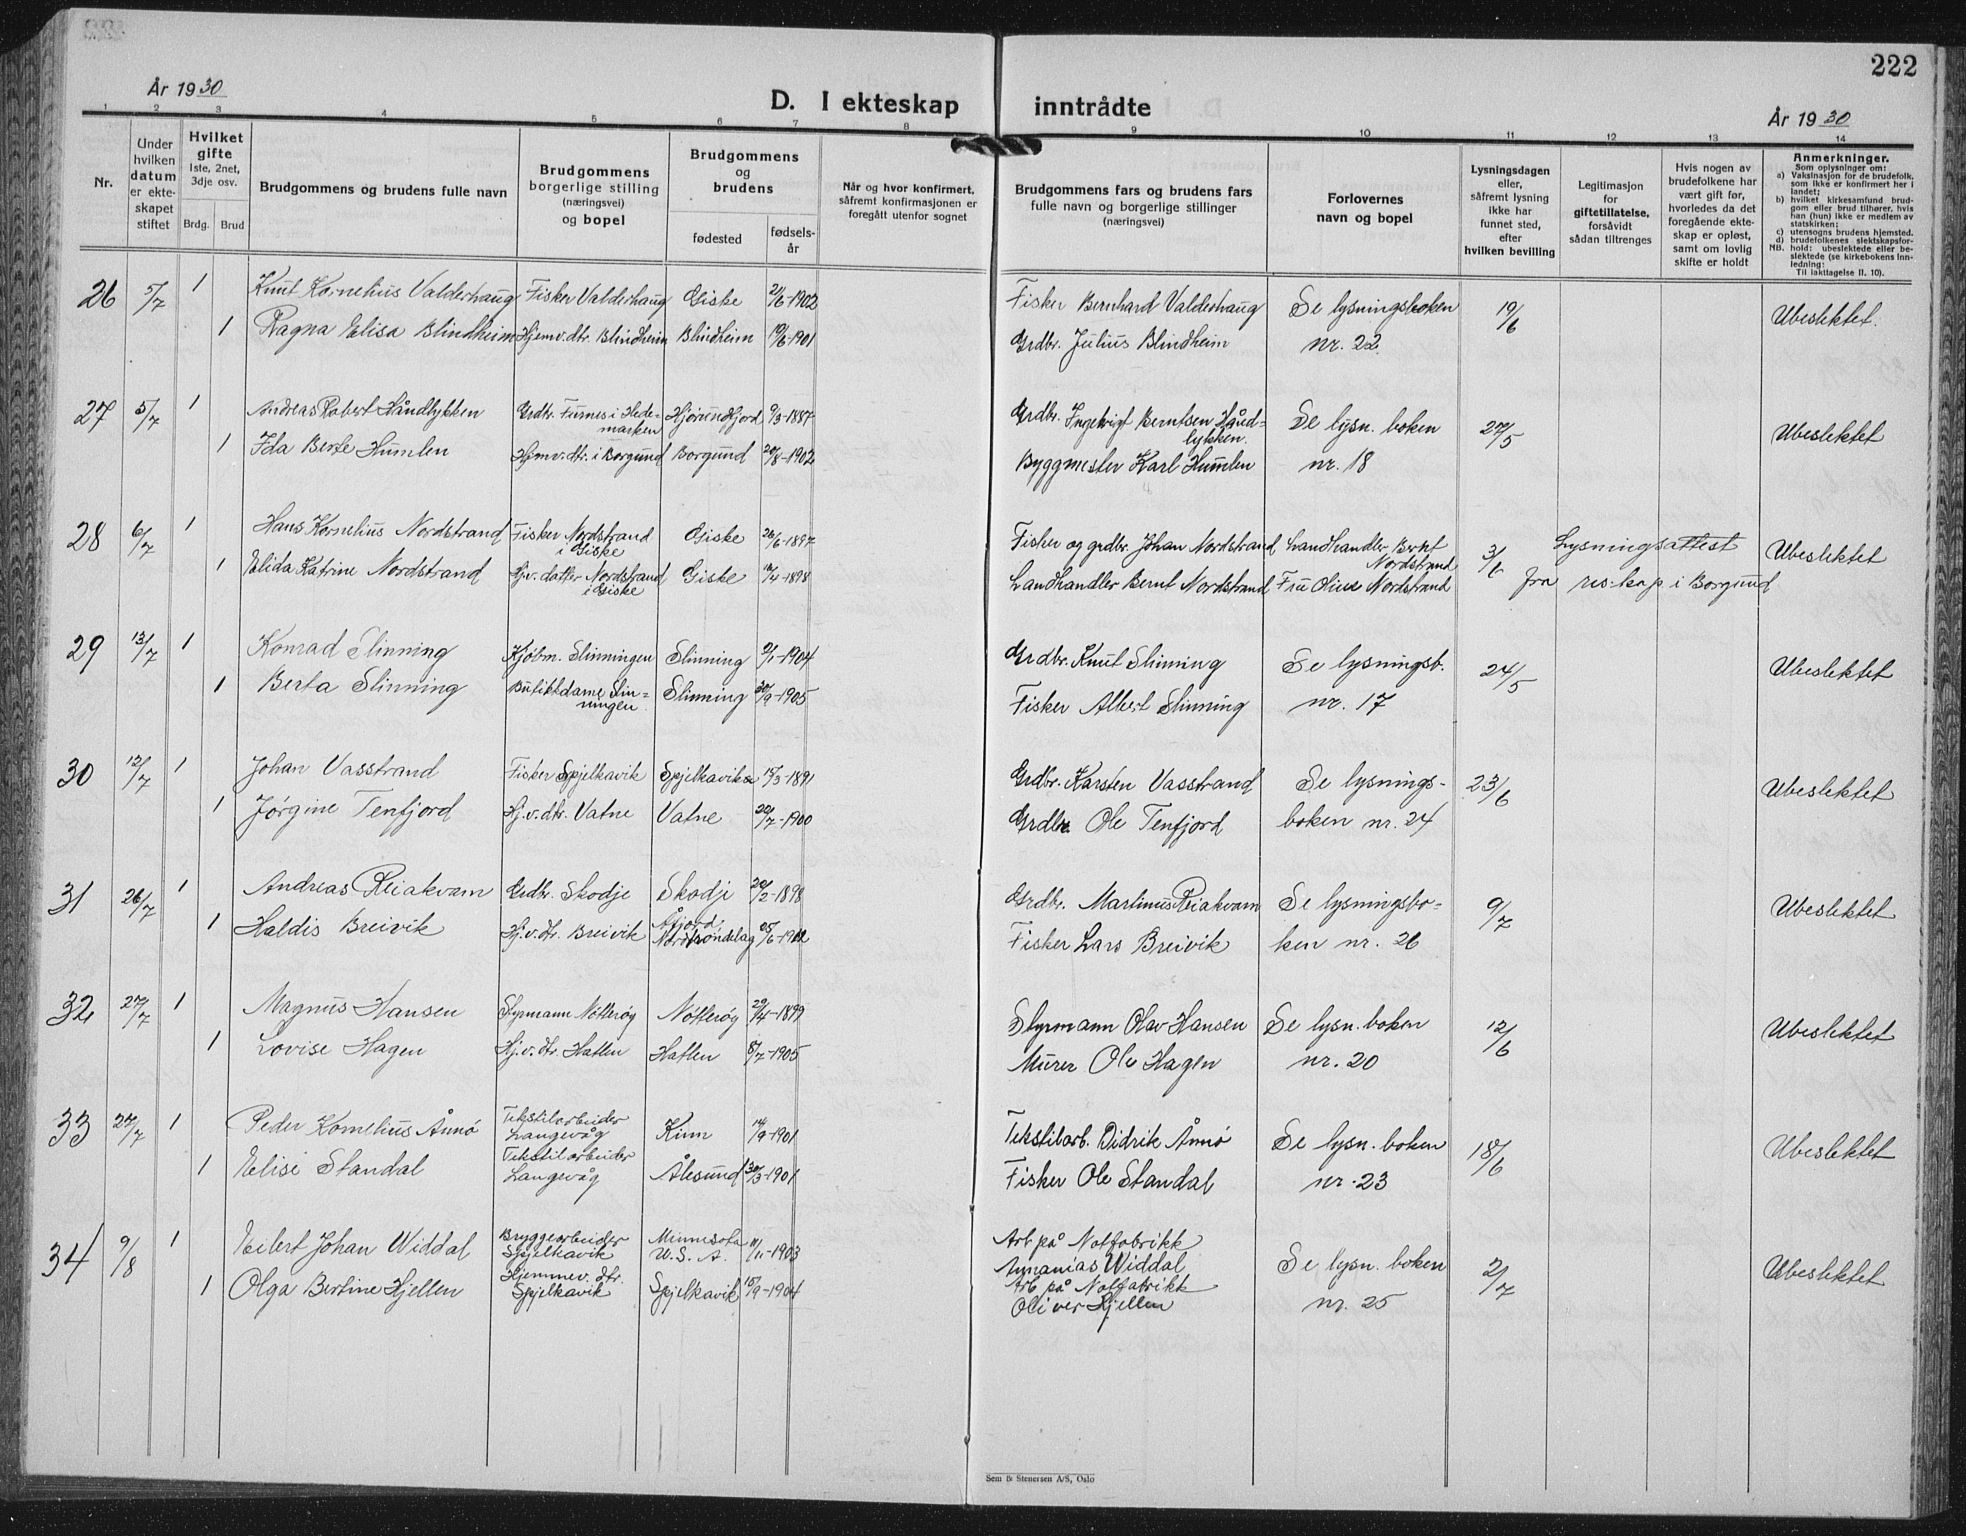 222
År 1930
D. I ekteskap inntrådte
År 1930
1 2 3 4 5 6 7 8 9 10 11 12 13 14
Nr.
Under hvilken datum er ekteskapet stiftet
Hvilket gifte 1ste, 2net, 3dje osv.
Brdg. Brud
Brudgommens og brudens fulle navn
Brudgommens borgerlige stilling (næringsvei) og bopel
Brudgommens og brudens
fødested
fødselsår
Når og hvor konfirmert, såfremt konfirmasjonen er foregått utenfor sognet
Brudgommens fars og brudens fars fulle navn og borgerlige stillinger (næringsvei)
Forlovernes navn og bopel
Lysningsdagen eller, såfremt lysning ikke har funnet sted, efter hvilken bevilling
Legitimasjon for giftetillatelse, forsåvidt sådan tiltrenges
Hvis nogen av brudefolkene har vært gift før, hvorledes da det foregående ekteskap er opløst, samt om lovlig skifte er holdt
Anmerkninger.
Som oplysninger om:
a) Vaksinasjon for de brudefolk, som ikke er konfirmert her i landet;
b) hvilket kirkesamfund brudgom eller brud tilhører, hvis han (hun) ikke er medlem av statskirken;
c) utensogns brudens hjemsted.
d) brudefolkenes slektskapsforhold: ubeslektede eller beslektede (se kirkebokens Innledning:
NB. Til iakttagelse II, 10).
26 5/7 1 Knut Kornelius Valderhaug Fisker Valderhaug Giske 2/6-1902 Fisker Bernhard Valderhaug Se lysningsboken 19/6 Ubeslektet.
1 Ragna Elisa Blindheim Hjemv. dtr. Blindheim Blindheim 19/6-1901 Grdbr. Julius Blindheim nr. 22.
27 5/7 1 Andreas Robert Håndlykken Grdbr. Furnes i Hedemarken Hjørundfjord 9/3-1887 Grdbr. Ingebrigt Berntsen Håndlykken. Se lysn. boken 27/5 Ubeslektet
1 Ida Berte Humlen Hjemv. dtr. i Borgund Borgund 20/8-1902 Byggmester Karl Humlen nr. 18
28 6/7 1 Hans Kornelius Nordstrand Fisker Nordstrand i Giske Giske 26/6-1897 Fisker og grdbr. Johan Nordstrand Landhandler Bernt Nordstrand 3/6 Lysningsattest Ubeslektet
1 Elida Katrine Nordstrand Hjv. datter Nordstrand i Giske Giske 12/4-1898 Landhandler Bernt Nordstrand Fru Oline Nordstrand fra res. kap i Borgund
29 13/7 1 Konrad Slinning Kjøbm. Slinningen Slinning 2/1-1904 Grdbr. Knut Slinning Se lysningsb. 24/5 Ubeslektet
1 Berta Slinning Butikkdame Slinningen Slinning 30/9-1905 Fisker Albert Slinning nr. 17
30 12/7 1 Johan Vasstrand Fisker Spjelkavik Spjelkavik 15/3-1891 Grdbr. Karsten Vasstrand Se lysnings- 23/6 Ubeslektet
1 Jørgine Tenfjord Hj.v. dtr. Vatne Vatne 20/7-1900 Grdbr. Ole Tenfjord boken nr. 24
31 26/7 1 Andreas Reiakvam Grdbr. Skodje Skodje 20/2-1898 Grdbr. Martinus Reiakvam Se lysningsbo- 9/7 Ubeslektet
1 Haldis Breivik Hj.v. dtr. Breivik Åfjord, Nordtrøndelag 25/6-1902 Fisker Lars Breivik ken nr. 26
32 27/7 1 Magnus Hansen Styrmann Nøtterøy Nøtterøy 29/4-1899 Styrmann Olav Hansen Se lysn. boken 12/6 Ubeslektet
1 Lovise Hagen Hj.v. dtr. Hatlen Hatlen 8/7-1905 Murer Ole Hagen nr. 20
33 27/7 1 Peder Kornelius Ånnø Tekstilarbeider Langevåg Kinn 14/9-1901 Tekstilarb. Didrik Ånnø Se lysn. boken 18/6 Ubeslektet
1 Elise Standal Tekstilarbeider Langevåg Ålesund 30/3-1901 Fisker Ole Standal nr. 23
34 9/8 1 Eilert Johan Widdal Bryggearbeider Spjelkavik Minnesota U.S.A. 11/11-1903 Arb på Notfabrikk Ananias Widdal Se lysn. boken 2/7 Ubeslektet
1 Olga Bertine Hjellen Hjemmev. dtr. Spjelkavik Spjelkavik 15/9-1904 Arb på Notfabrikk Oliver Hjellen nr. 25
Sem & Stenersen A/S, Oslo